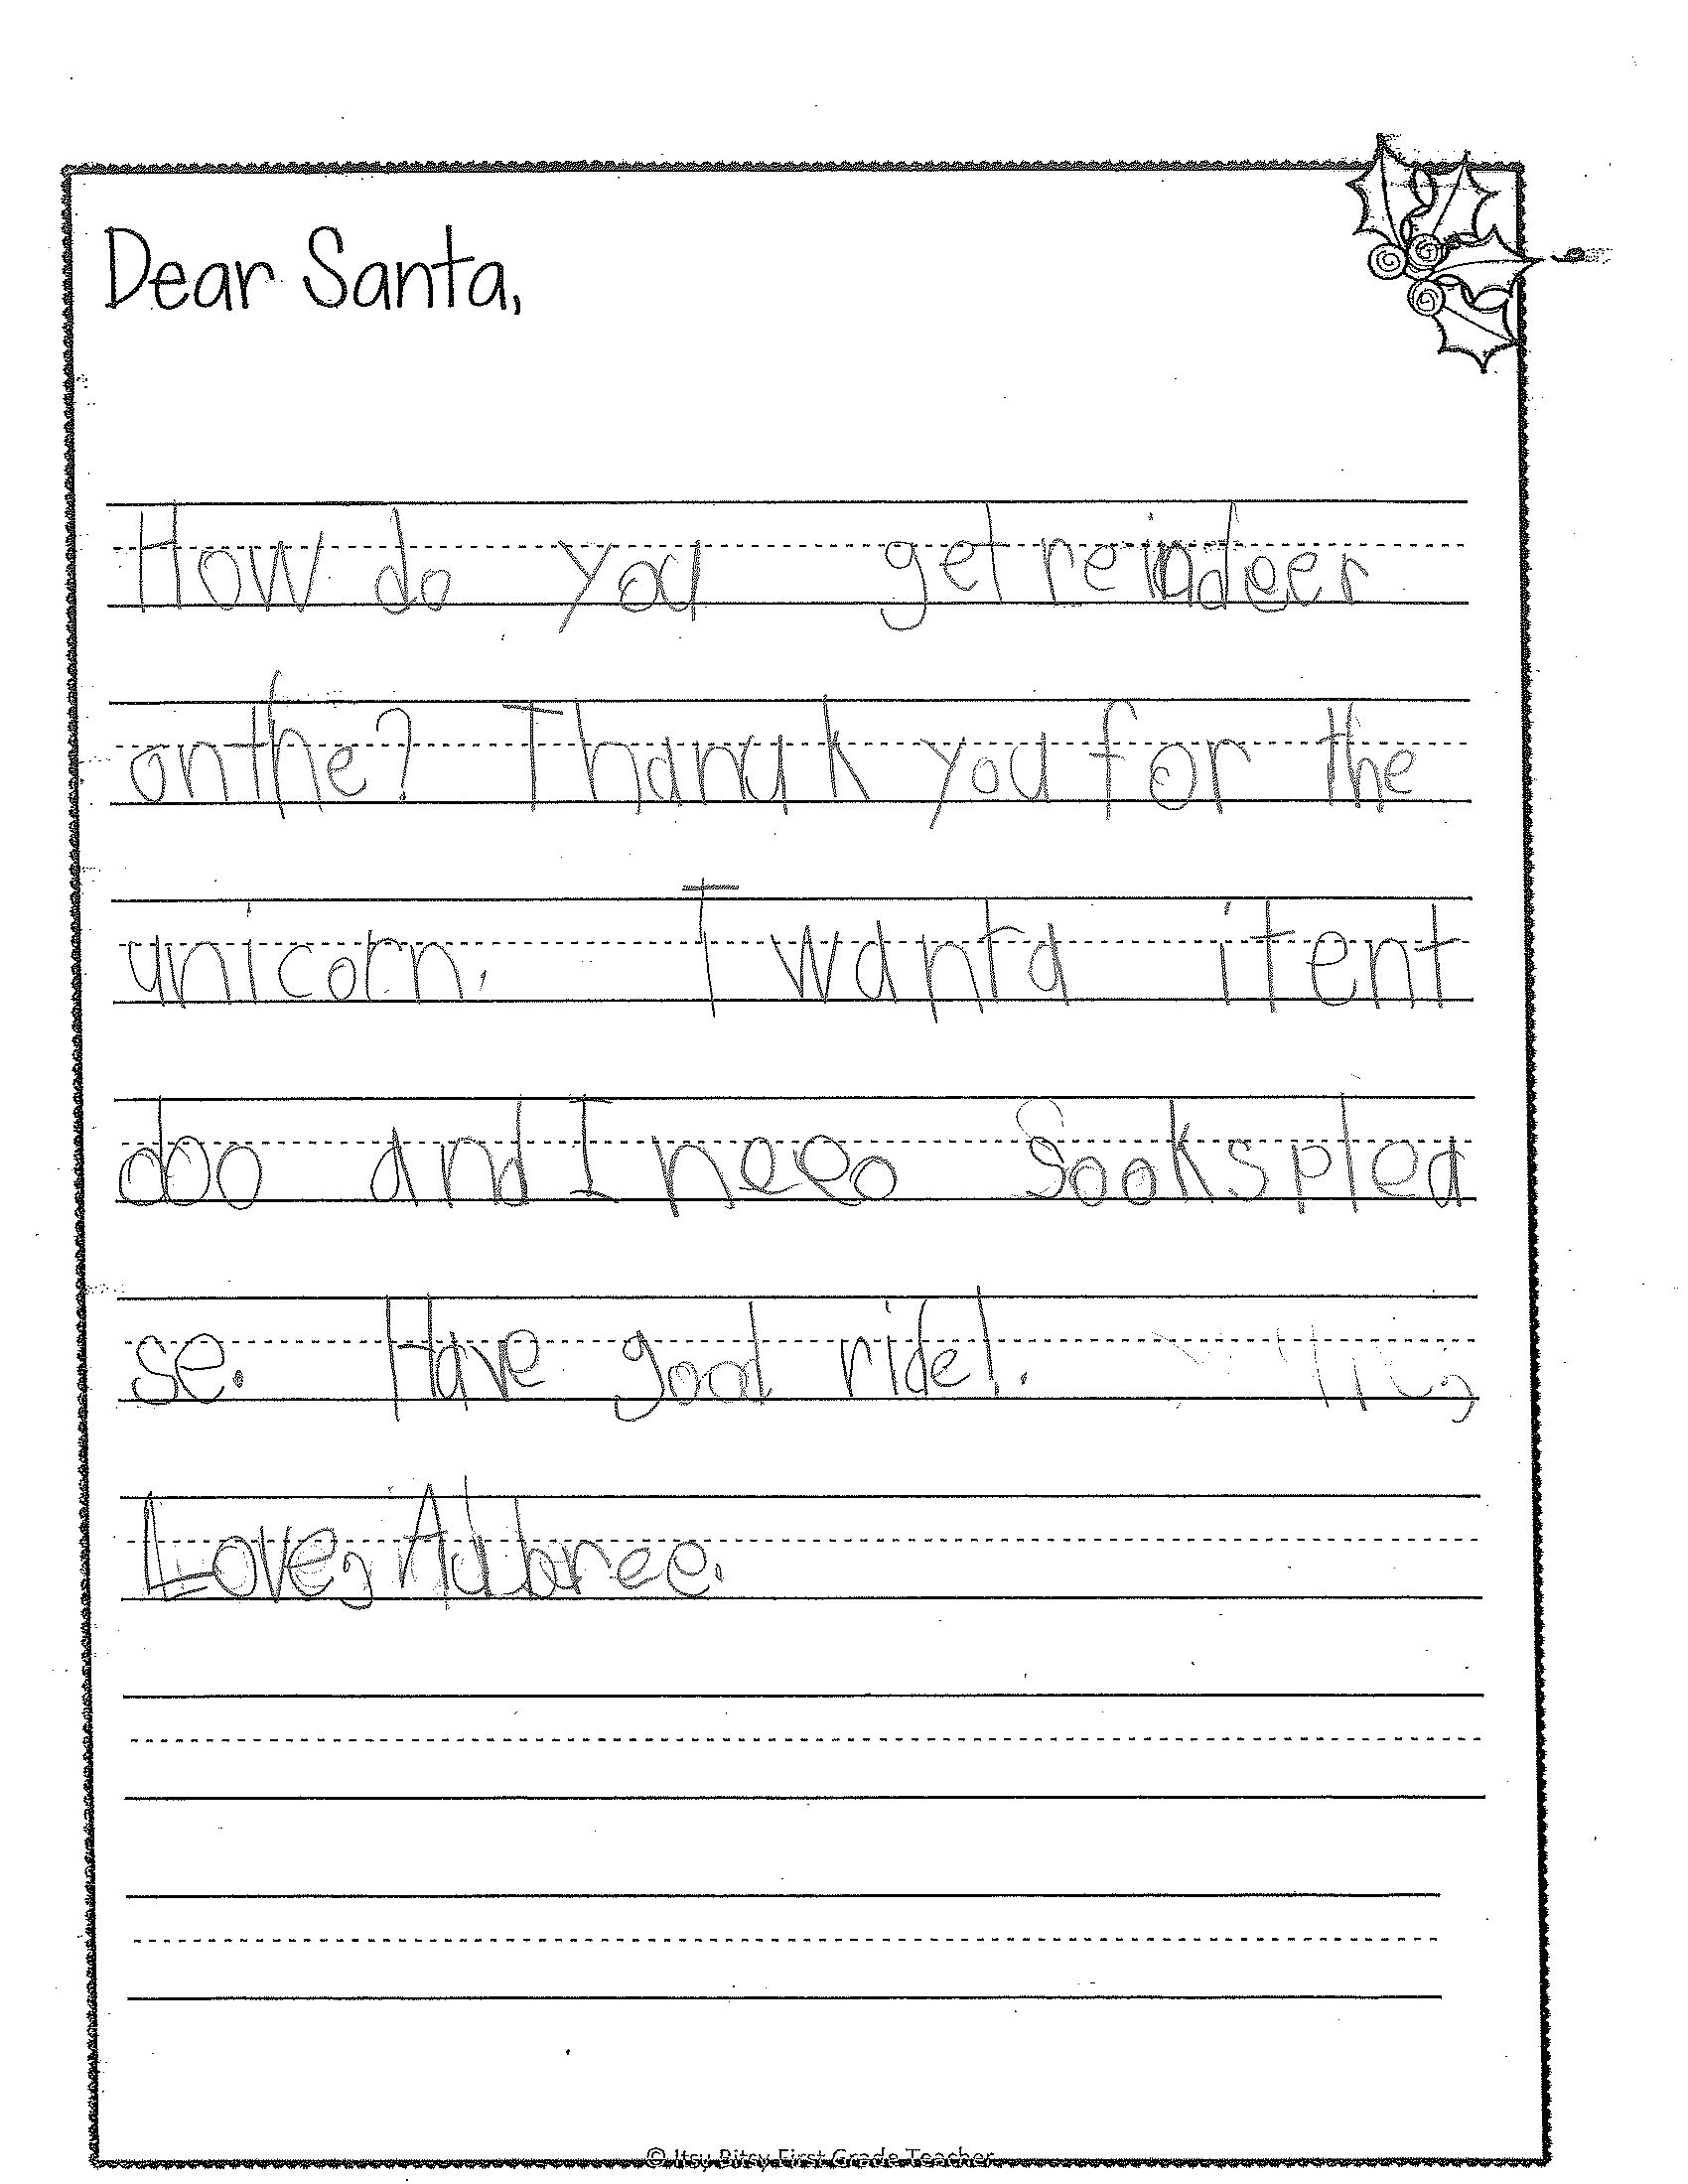 Dear Santa,
How do you get reindeer
on the? Thanuk you for the
unicorn. I want a itent
doo and I neeo Sooks plea
se. Have good ride!.
Love, Aubree.
© Itsy Bitsy First Grade Teacher